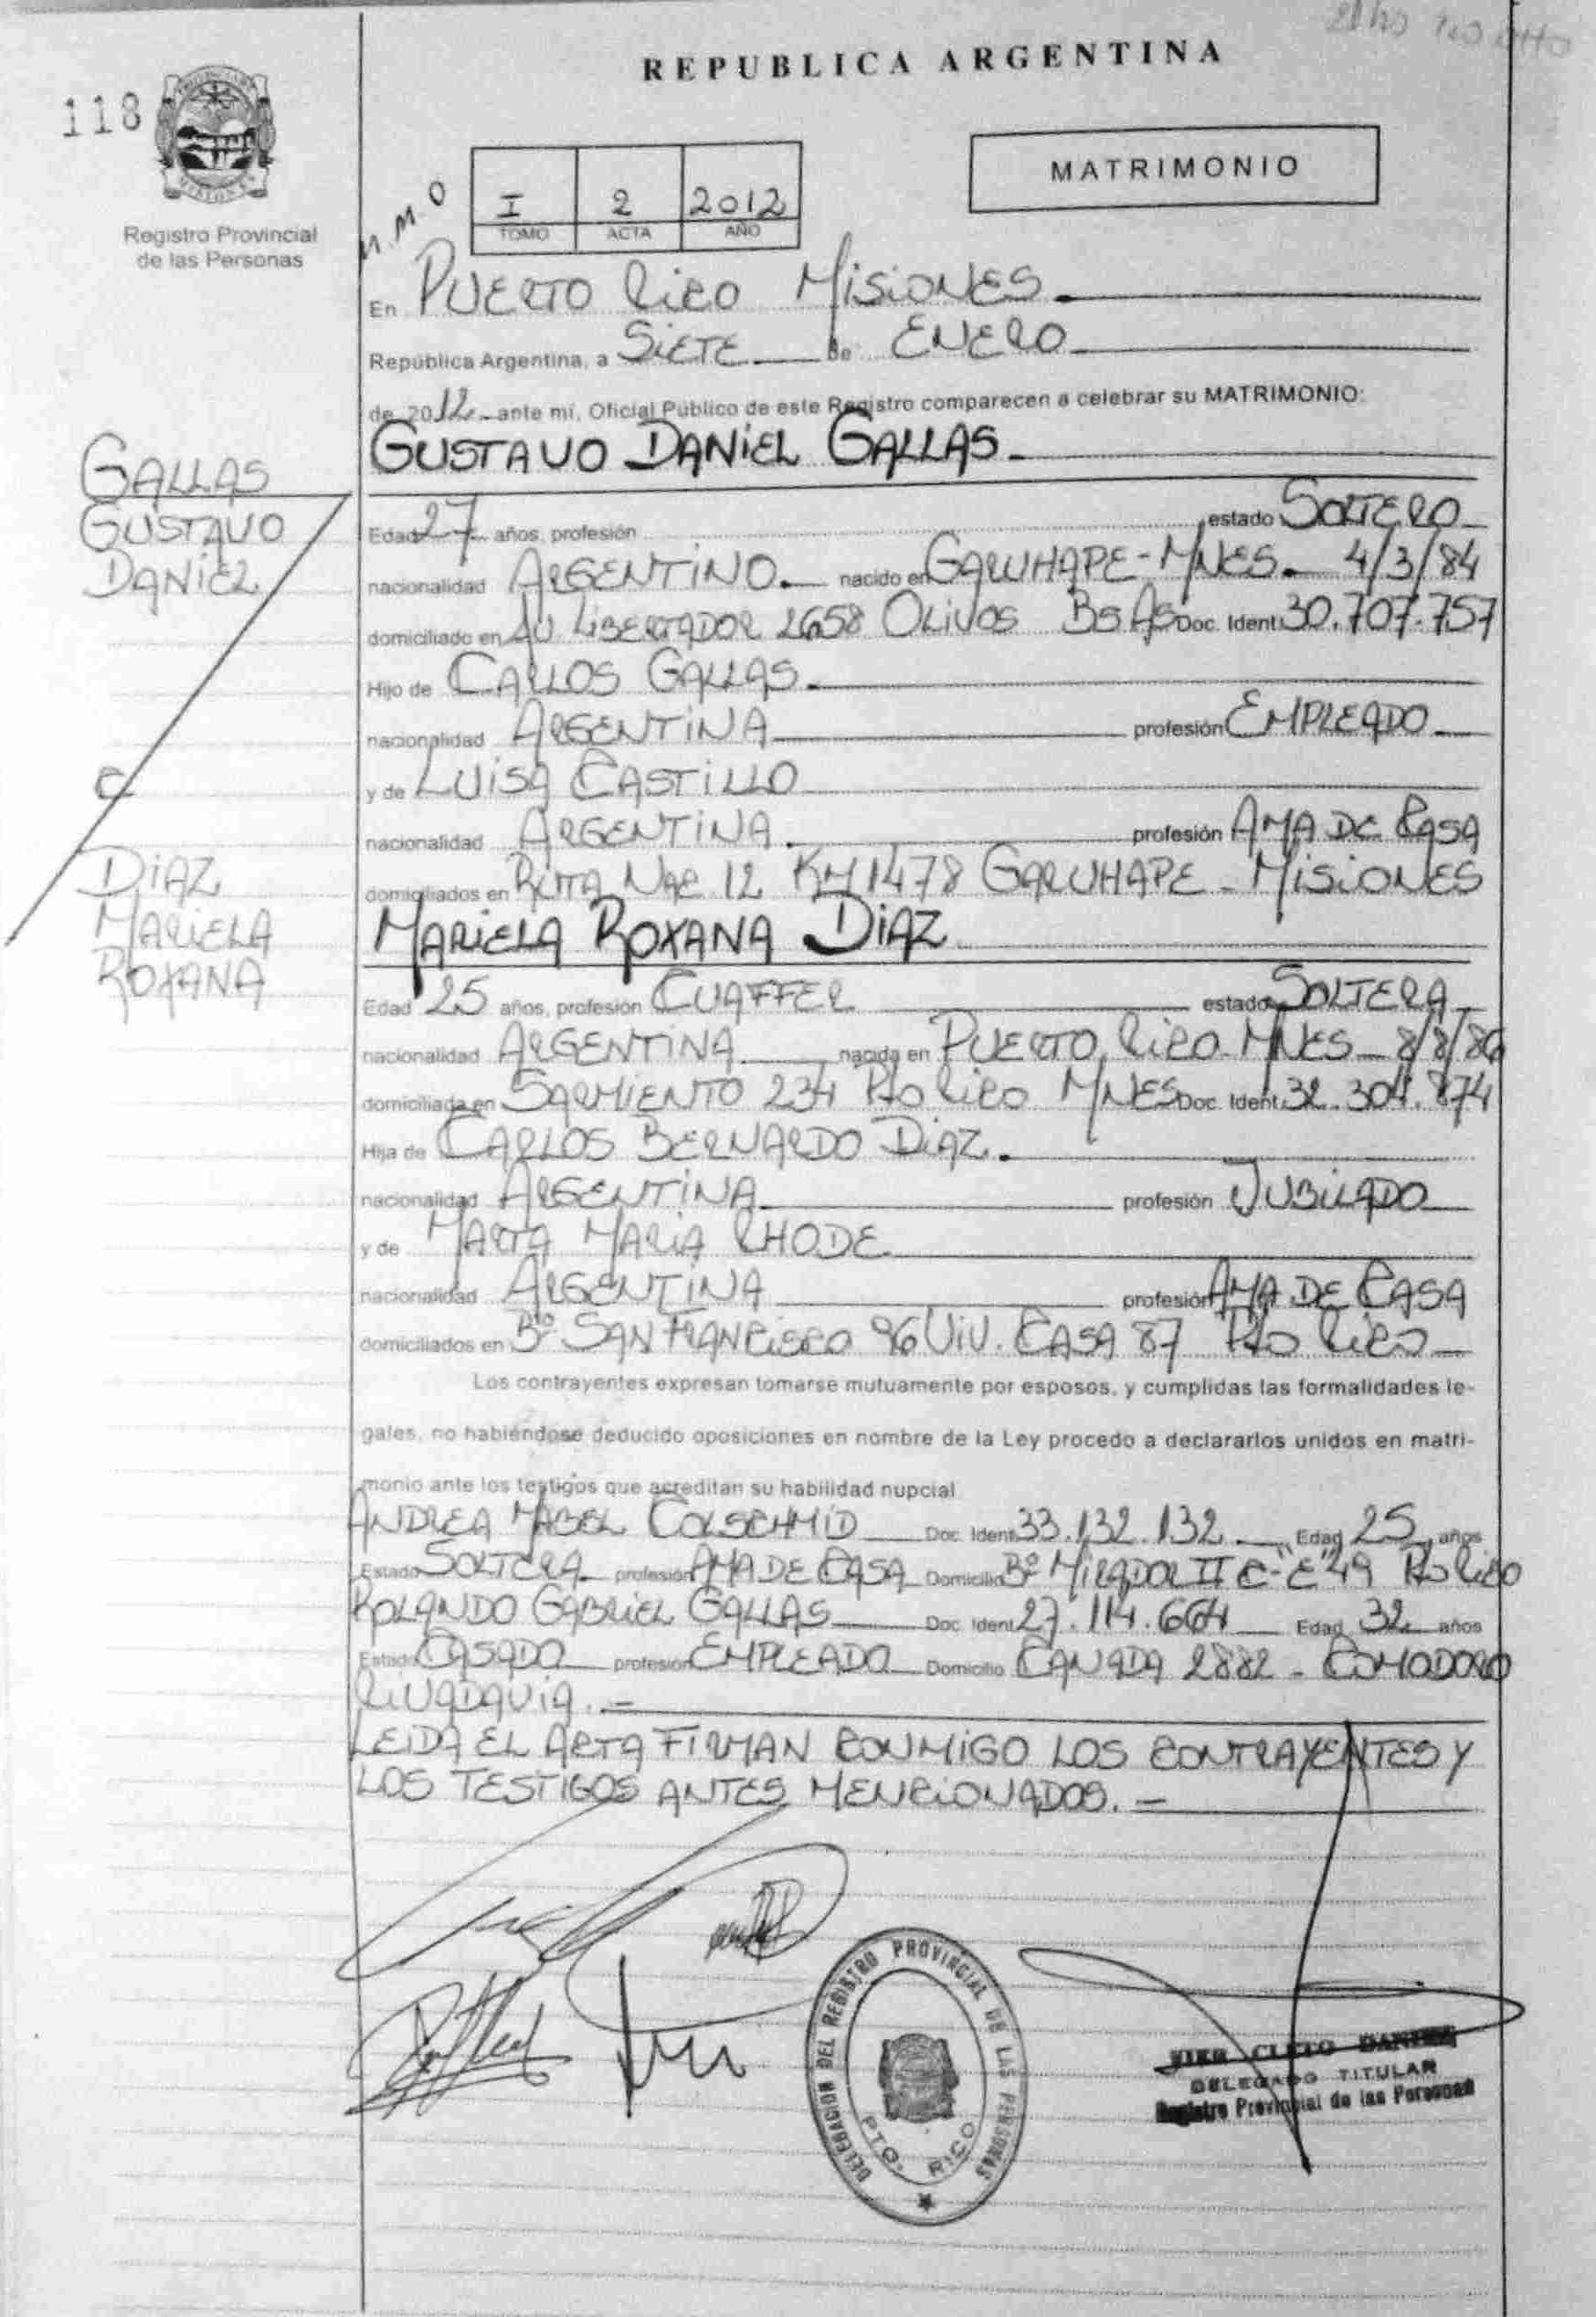 REPUBLICA ARGENTINA
118
MISIONES
Registro Provincial
de las Personas
MATRIMONIO
I 2 2012
TOMO ACTA AÑO
En PUERTO RICO MISIONES.
República Argentina, a SIETE de ENERO
de 2012 ante mí, Oficial Público de este Registro comparecen a celebrar su MATRIMONIO:
GUSTAVO DANIEL GALLAS
GALLAS
GUSTAVO
DANIEL
Edad 27 años, profesión estado SOLTERO
nacionalidad ARGENTINO. nacido en GARUHAPE-MNES. 4/3/84
domiciliado en AV LIBERTADOR 2658 OLIVOS BS AS Doc. Ident. 30.707.757
Hijo de CARLOS GALLAS.
nacionalidad ARGENTINA profesión EMPLEADO
y de LUISA CASTILLO
nacionalidad ARGENTINA. profesión AMA DE CASA
domiciliados en RUTA NAC 12 KM 1478 GARUHAPE - MISIONES
C
DIAZ
MARIELA
ROXANA
MARIELA ROXANA DIAZ
Edad 25 años, profesión CUAFFER estado SOLTERA
nacionalidad ARGENTINA nacida en PUERTO RICO MNES 8/8/86
domiciliada en SARMIENTO 234 Pto RICO MNES Doc. Ident. 32.304.874
Hija de CARLOS BERNARDO DIAZ.
nacionalidad ARGENTINA profesión JUBILADO
y de MARTA MARIA RHODE
nacionalidad ARGENTINA profesión AMA DE CASA
domiciliados en Bº SAN FRANCISCO 96 VIV. CASA 87 Pto RICO
Los contrayentes expresan tomarse mutuamente por esposos, y cumplidas las formalidades le-
gales, no habiéndose deducido oposiciones en nombre de la Ley procedo a declararlos unidos en matri-
monio ante los testigos que acreditan su habilidad nupcial
ANDREA MABEL COLSCHMID Doc. Ident. 33.132.132 Edad 25 años
Estado SOLTERA profesión AMA DE CASA Domicilio Bº MIRADOR II C-"E" 49 Pto RICO
ROLANDO GABRIEL GALLAS Doc. Ident. 27.114.664 Edad 32 años
Estado CASADO profesión EMPLEADO Domicilio CANADA 2882 - COMODORO
RIVADAVIA. =
LEIDA EL ACTA FIRMAN CONMIGO LOS CONTRAYENTES Y
LOS TESTIGOS ANTES MENCIONADOS. -
DELEGACION DEL REGISTRO PROVINCIAL DE LAS PERSONAS
PTO. RICO
VIER CLETO DANIEL
DELEGADO TITULAR
Registro Provincial de las Personas